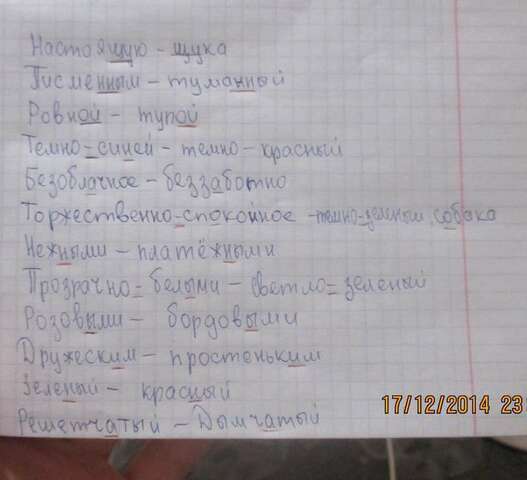 Настоящую - щука
Писменным - туманный
Ровной - тупой
Темно=синей - темно-красный
Безоблачное - беззаботно
Торжественно-спокойное -темно-зеленый, собака
Нежными - платёжными
Прозрачно=белыми - светло=зеленый
Розовыми - бордовыми
Дружеским - простеньким
Зеленый - красный
Решетчатый - Дымчатый
17/12/2014 23